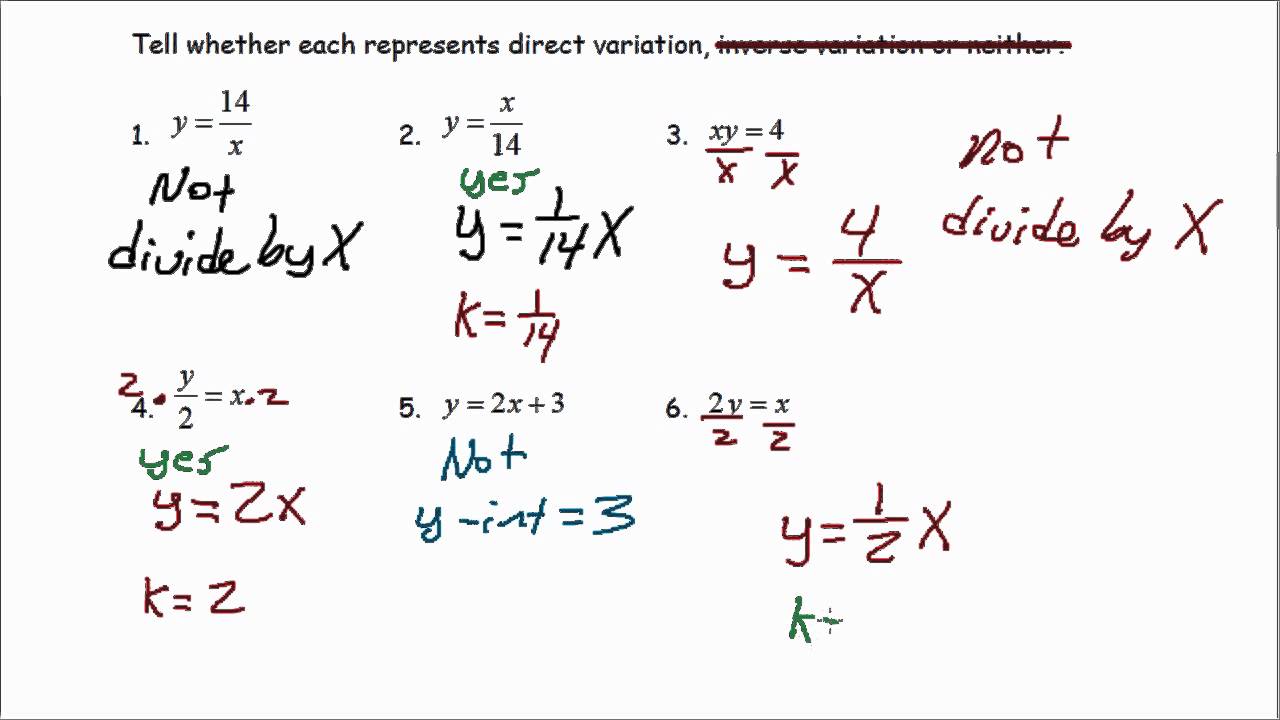 Tell whether each represents direct variation, inverse variation or neither.
1. y = 14/x
Not
divide by X
2. y = x/14
yes
y = 1/14 X
k = 1/14
3. xy = 4
x x
y = 4/x
not
divide by X
2 · 4. y/2 = x · 2
yes
y = 2x
k = 2
5. y = 2x + 3
Not
y-int = 3
6. 2y = x
2 2
y = 1/2 X
k -